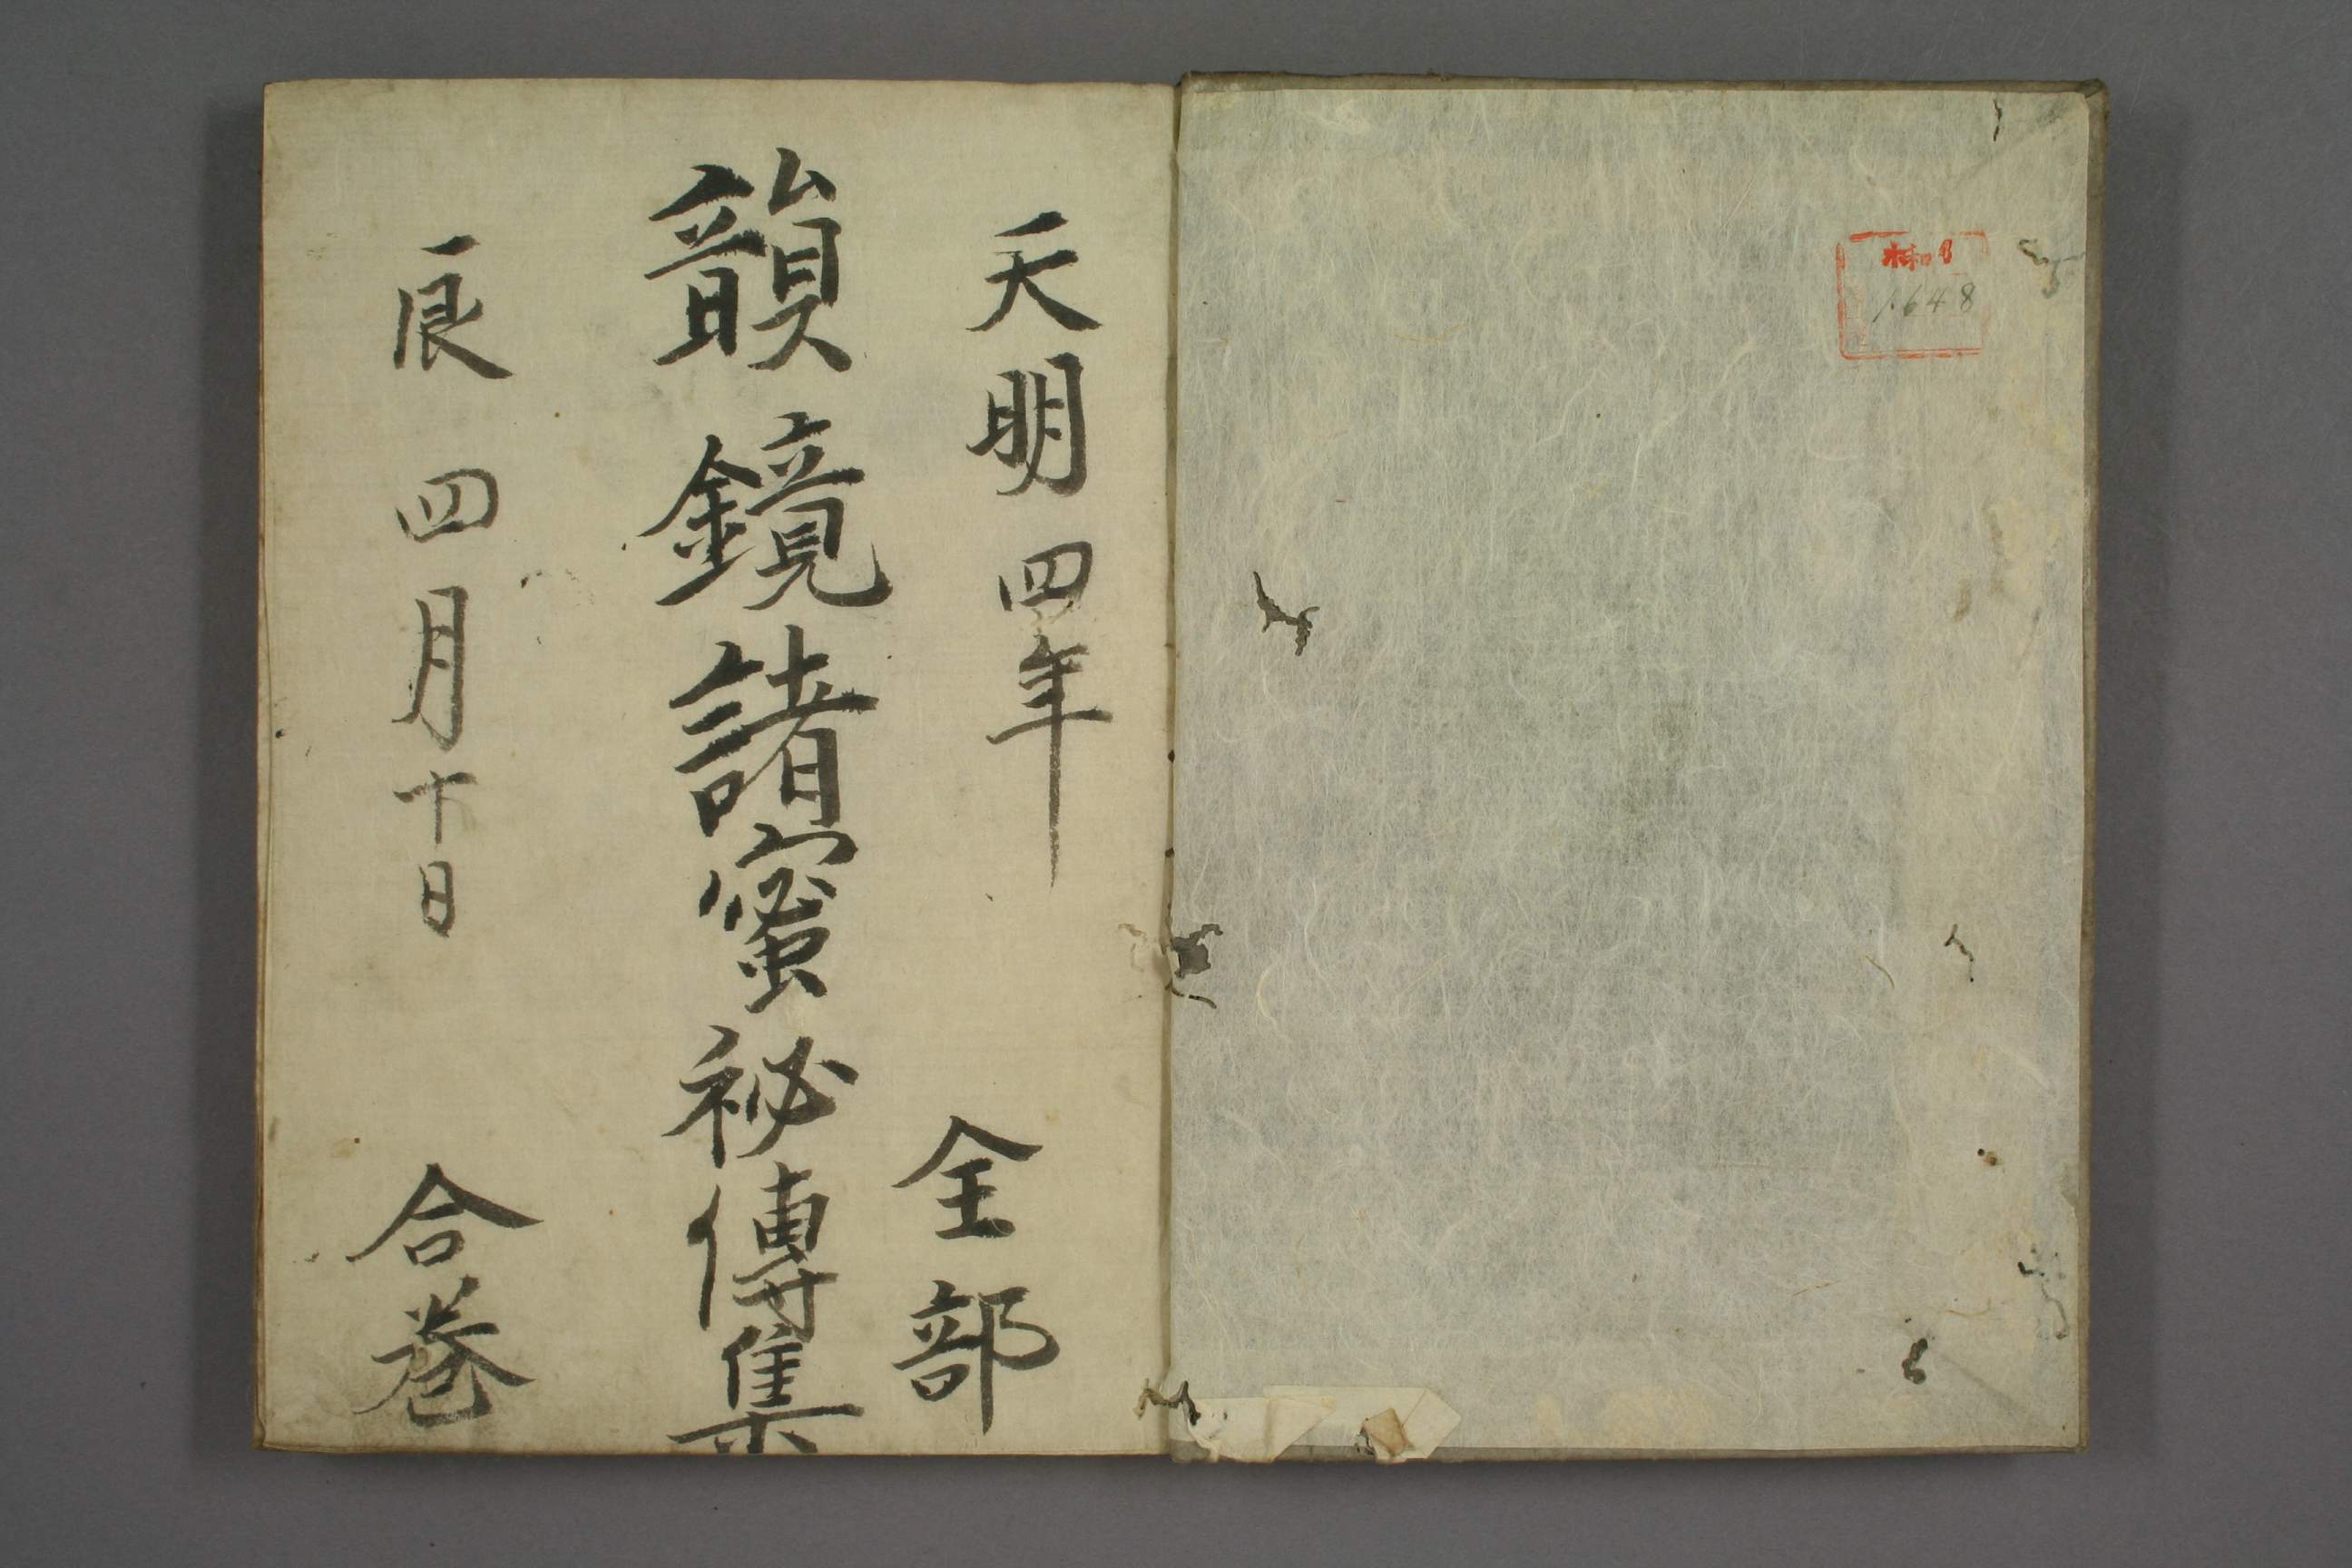 1648
天明四年 全部
韻鏡諸蜜祕傳集
辰 四月十日 合巻